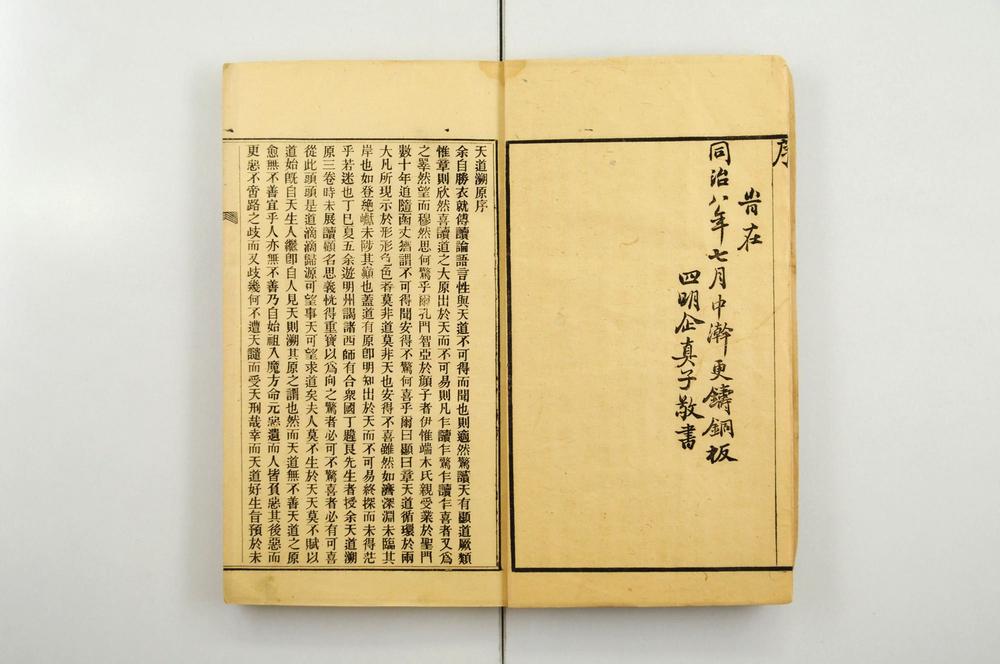 序
旹在
同治八年七月中澣更鑄銅板
四明企真子敬書
天道溯原序
余自勝衣就傅讀論語言性與天道不可得而聞也則適然驚讀天有顯道厥類
惟章則欣然喜讀道之大原出於天而不可易則凡乍讀乍驚乍讀乍喜者又爲
之睪然望而穆然思何驚乎爾孔門智亞於顏子者伊惟端木氏親受業於聖門
數十年追隨函丈猶謂不可得聞安得不驚何喜乎爾曰顯曰章天道循環於兩
大凡所現示於形形色色者莫非道莫非天也安得不喜雖然如濟深淵未臨其
岸也如登絶巘未陟其巔也蓋道有原卽明知出於天而不可易終探而未得茫
乎若迷也丁巳夏五余遊明州謁諸西師有合衆國丁韙良先生者授余天道溯
原三卷時未展讀顧名思義恍得重寶以爲向之驚者必可不驚喜者必有可喜
從此頭頭是道滴滴歸源可望事天可望求道矣夫人莫不生於天天莫不賦以
道始旣自天生人繼卽自人見天則溯其原之謂也然而天道無不善天道之原
愈無不善宜乎人亦無不善乃自始祖入魔方命元惡遺而人皆負惡其後惡而
更惡不啻路之歧而又歧幾何不遭天譴而受天刑哉幸而天道好生旨預於未